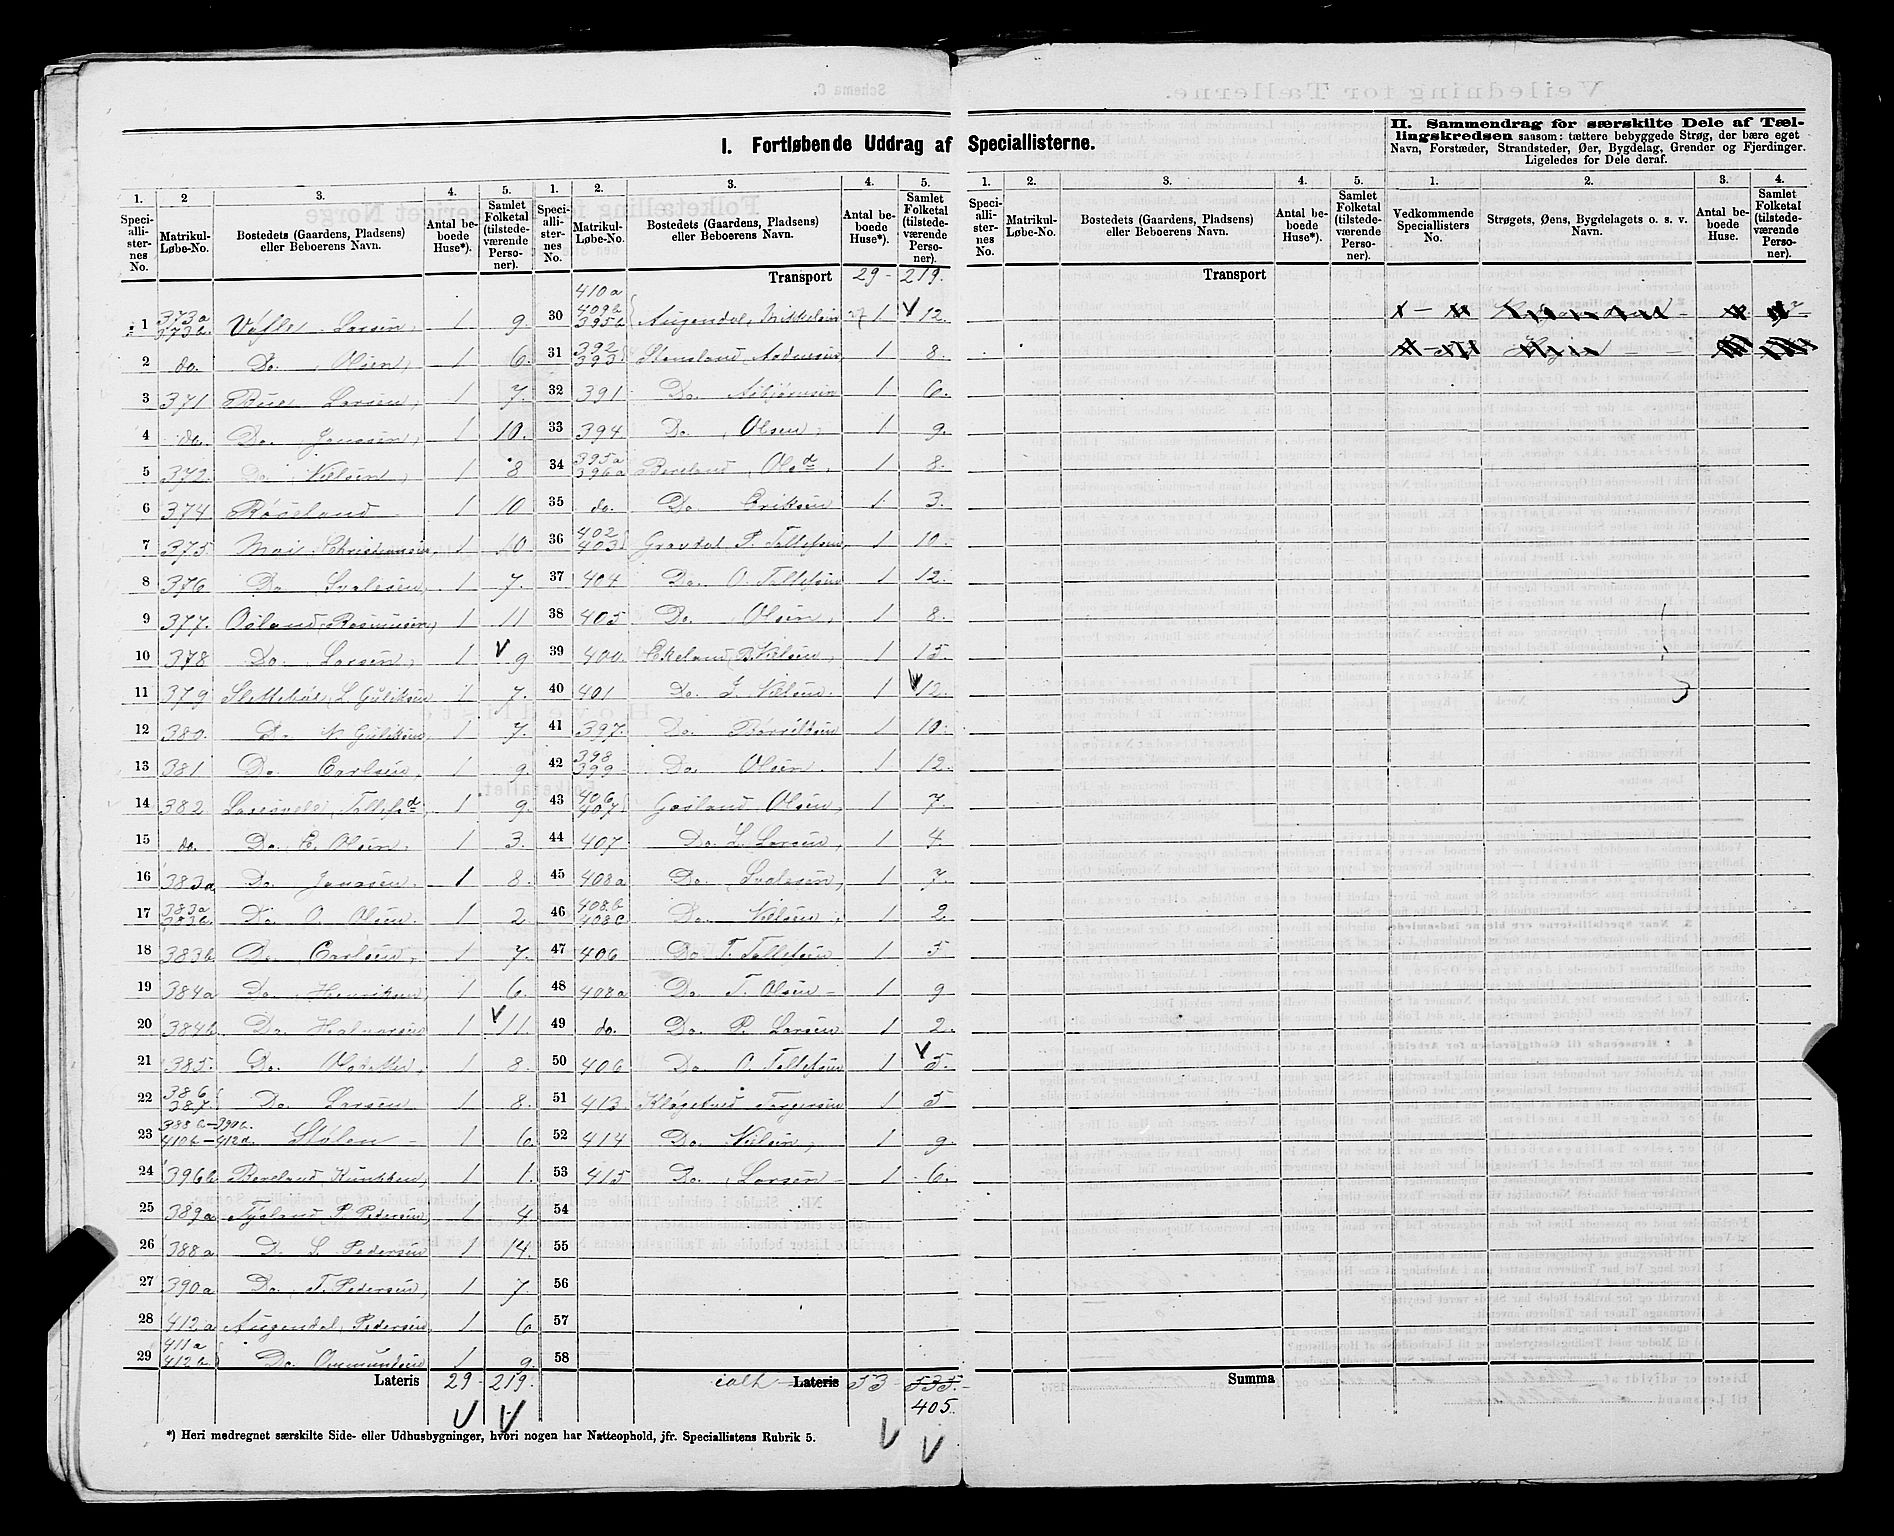 I. Fortløbende Uddrag af Speciallisterne.
II. Sammendrag for særskilte Dele af Tæl-
lingskredsen saasom: tættere bebyggede Strøg, der bære eget
Navn, Forstæder, Strandsteder, Øer, Bygdelag, Grender og Fjerdinger.
Ligeledes for Dele deraf.
1. Speciallisternes No. | 2 Matrikul-Løbe-No. | 3. Bostedets (Gaardens, Pladsens) eller Beboerens Navn. | 4. Antal beboede Huse*). | 5. Samlet Folketal (tilstedeværende Personer).
1 373a 373b. Løfle Larsen, 1 9.
2 do. Do. Olsen, 1 6.
3 371 Bue Larsen, 1 7.
4 do. Do. Jonasen, 1 10.
5 372. Do Nielsen, 1 8
6 374 Røseland 1 10
7 375 Moi Christiansen, 1 10.
8 376 Do. Svalesen, 1 7.
9 377. Osland, Rasmusen, 1 11
10 378 Do. Larsen, 1 9
11 379 Slettebøe, L. Guliksen 1 7.
12 380. Do N. Guliksen 1 7.
13 381 Do. Carlsen, 1 9.
14 382 Tollefsd., 1 9.
15 do. Do. E. Olsen, 1 3.
16 383a Do. Jonasen. 1 8.
17 383a 383b Do O. Olsen. 1 2.
18 383b Do. Carlsen, 1 7.
19 384a Do. Henriksen, 1 6.
20 384b. Do. Halvorsen 1 11.
21 385. Do. 1 8.
22 386 387. Do. Larsen 1 8.
23 388b-390b. 410b-412d. Stølen 1 6.
24 396b Bereland, Knudsen, 1 1.
25 389a Tysland P. Pedersen, 1 4
26 388a D. L. Pedersen 1 14.
27 390a Do. T. Pedersen, 1 7
28 412a Augendal, Pedersen, 1 6
29 411a 412b Do. Ommundsen 1 9.
Lateris 29- 219.
*) Heri medregnet særskilte Side- eller Udhusbygninger, hvori nogen har Natteophold, jfr. Speciallistens Rubrik 5.
1. Speciallisternes No. | 2. Matrikul-Løbe-No. | 3. Bostedets (Gaardens, Pladsens) eller Beboerens Navn. | 4. Antal beboede Huse*). | 5. Samlet Folketal (tilstedeværende Personer).
Transport 29- 219.
30 410a 409b 395b Augendal, Mikkelsen 1 12.
31 392 393 Stensland, Aadnesen 1 8.
32 391 Do. Asbjørnsen 1 6.
33 394. Do. Olsen, 1 9.
34 395a 396a Bereland, Olsd., 1 8.
35 do. Do. Eriksen 1 3.
36 402 403 Gravdal P. Tollefsen, 1 10.
37 404 Do. O. Tollefsen 1 12.
38 405 Do. Olsen, 1 8.
39 400. Ekeland B. Nielsen, 1 15.
40 401 Do. J. Nielsen. 1 12.
41 397. Do. 1 10.
42 398 399 Do. Olsen. 1 12.
43 406 407 Gøsland Olsen, 1 7.
44 407 Do. L. Larsen, 1 4.
45 408a Do. Svalesen, 1 7.
46 408b 408c Do. Nielsen, 1 2.
47 406 Do. T. Tollefsen 1 5.
48 408a Do. T. Olsen- 1 9
49 do. Do. P. Larsen 1 2.
50 406 Do. O. Tollefsen 1 5.
51 413. Torgersen 1 5
52 414 Do. Nielsen, 1 9.
53 415 Do. Larsen- 1 6.
54
55
56
57
58
ialt Lateris 53- 535.-
405.
1. Speciallisternes No. | 2. Matrikul-Løbe-No. | 3. Bostedets (Gaardens, Pladsens) eller Beboerens Navn. | 4. Antal beboede Huse*). | 5. Samlet Folketal (tilstedeværende Personer).
Transport
Summa
1. Vedkommende Speciallisters No. | 2. Strøgets, Øens, Bygdelagets o. s. v. Navn. | 3. Antal beboede Huse. | 4. Samlet Folketal (tilstedeværende Personer).
3